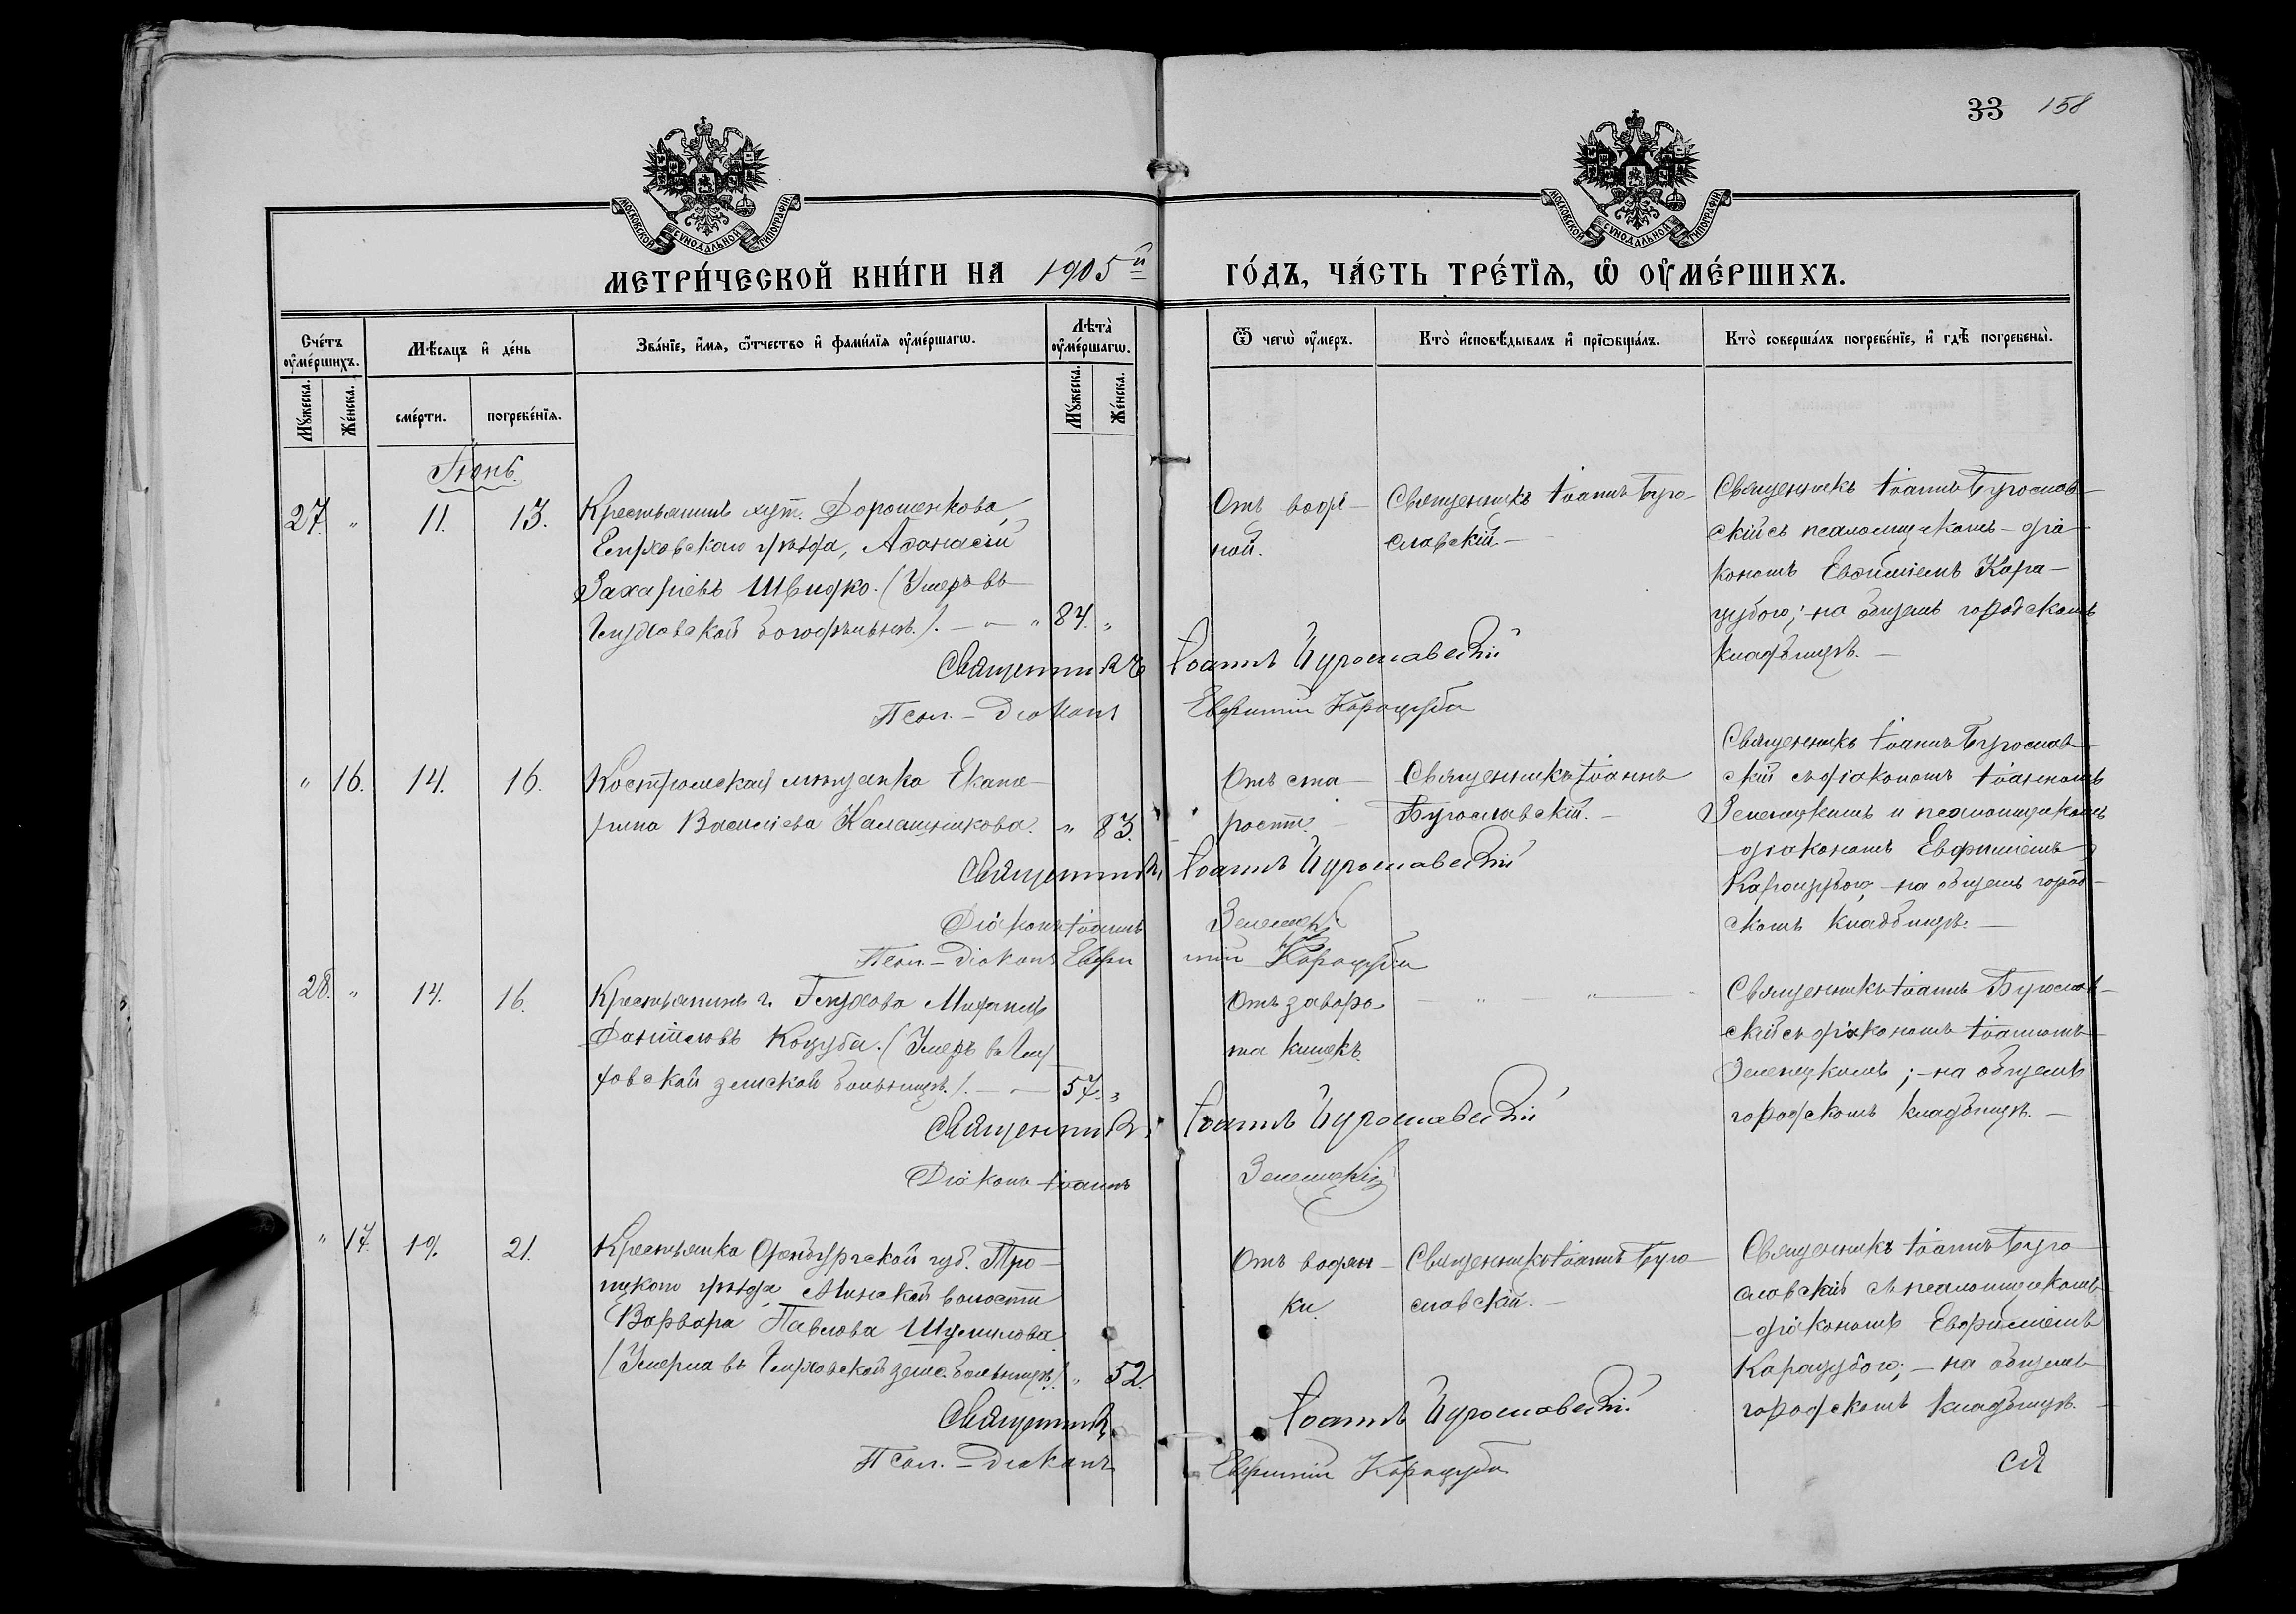 33 158
МОСКОВСКОЙ СѴНОДАЛЬНОЙ ТИПОГРАФІИ
МОСКОВСКОЙ СѴНОДАЛЬНОЙ ТИПОГРАФІИ
МЕТРИ́ЧЕСКОЙ КНИ́ГИ НА 1905й ГО́ДЪ, ЧА́СТЬ ТРЕ́ТІѦ, Ѡ҆ ОУ҆МЕ́РШИХЪ.
Сче́тъ оу҆ме́ршихъ.
Мѣ́сяцъ и҆ де́нь
Зва́нїе, и҆́мѧ, ѻ҆́тчество и҆ фами́лїѧ оу҆ме́ршагѡ.
Лѣта̀ оу҆ме́ршагѡ.
Ѿ чегѡ̀ оу҆́меръ.
Кто̀ и҆сповѣ́дывалъ и҆ прїѡбща́лъ.
Кто̀ соверша́лъ погребе́нїе, и҆ гдѣ̀ погребены̀.
Мꙋ́жеска.
Же́нска.
сме́рти.
погребе́нїѧ.
Мꙋ́жеска.
Же́нска.
Іюнь.
27. " 11. 13. Крестьянинъ хут. Дорошенкова,
Глуховскаго уѣзда, Аѳанасій
Захаріевъ Швидко. (Умеръ въ
Глуховской богодѣльнѣ.). — — " 84. "
Отъ водя-
ной.
Священникъ Іоаннъ Буго-
славскій. —
Священникъ Іоаннъ Бугослав-
скій съ псаломщикомъ - діа-
кономъ Евфиміемъ Кара-
цубою; - на общемъ городскомъ
кладбищѣ. —
Священникъ Іоаннъ Бугославскій
Псал. - Діаконъ Евфимій Карацуба
" 16. 14. 16. Костромская мѣщанка Екате-
рина Василіева Калашникова. " 83.
Отъ ста-
рости. —
Священникъ Іоаннъ
Бугославскій. —
Священникъ Іоаннъ Бугослав-
скій съ діакономъ Іоанномъ
Зеленецкимъ и псаломщикомъ
- діакономъ Евфиміемъ
Карацубою; - на общемъ город-
скомъ кладбищѣ. —
Священникъ Іоаннъ Бугославскій
Діаконъ Іоаннъ
Псал. - Діаконъ Евфимій Карацуба
28. " 14. 16. Крестьянинъ г. Глухова Михаилъ
Даніиловъ Коцуба. (Умеръ въ Глу-
ховской земской больницѣ.). — — 57. "
Отъ заворо-
та кишекъ.
— " " —
Священникъ Іоаннъ Бугослав-
скій съ діакономъ Іоанномъ
Зеленецкимъ; - на общемъ
городскомъ кладбищѣ. —
Священникъ Іоаннъ Бугославскій
Діаконъ Іоаннъ Зеленецкій
" 17. 19. 21. Крестьянка Оренбургской губ. Тро-
ицкаго уѣзда,
волости
Варвара Павлова Шумилова.
(Умерла въ Глуховской земс. больницѣ.). " 52.
Отъ водян-
ки.
Священникъ Іоаннъ Буго-
славскій. —
Священникъ Іоаннъ Буго-
славскій съ псаломщикомъ
- діакономъ Евфиміемъ
Карацубою; - на общемъ
городскомъ кладбищѣ. —
Священникъ Іоаннъ Бугославскій.
Псал. - Діаконъ Евфимій Карацуба